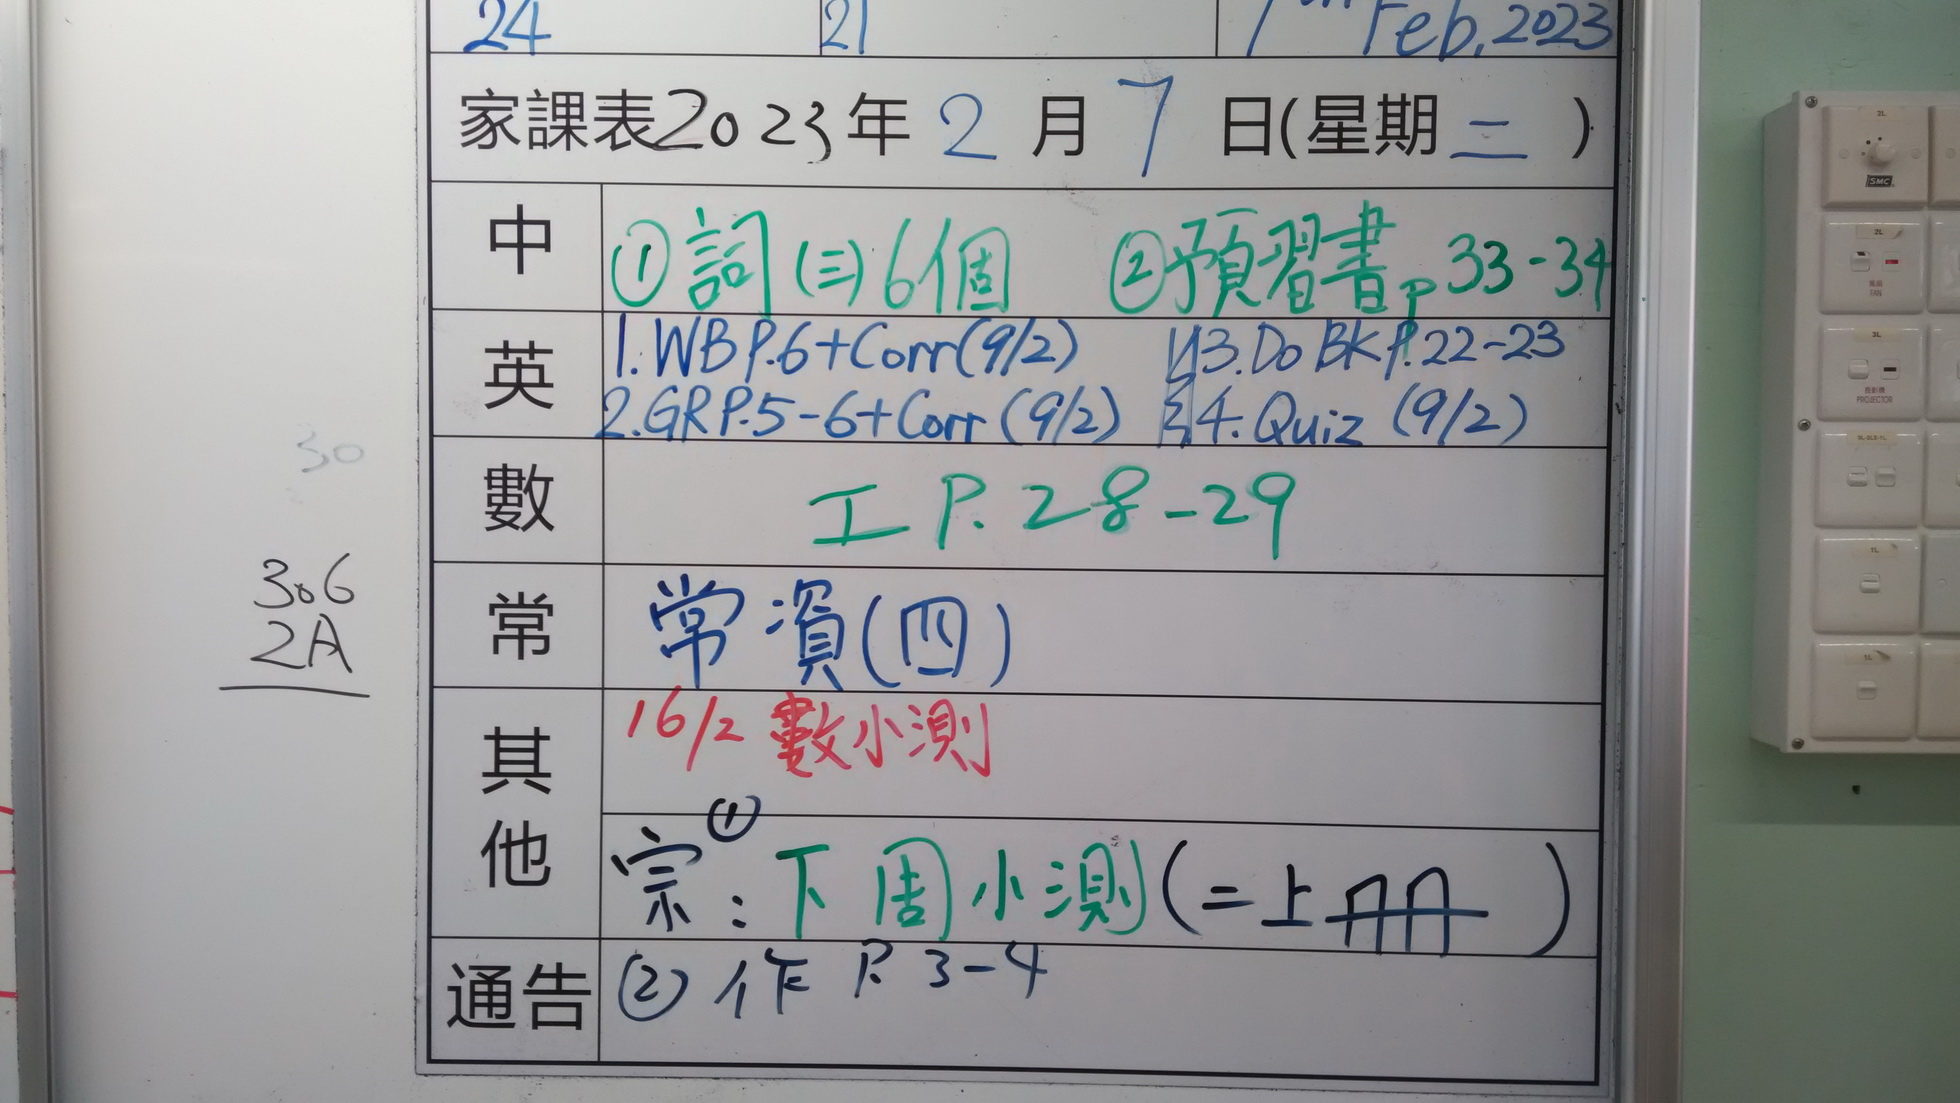 24 21 7th Feb, 2023
家課表2023年2月7日(星期二)
中 ①詞(三)6個 ②預習書p33-34
英 1.WB P.6+Corr(9/2) 3.Do BK P.22-23
2.GR P.5-6+Corr(9/2) 4.Quiz (9/2)
數 工 P.28-29
常 常資(四)
其他 16/2 數小測
宗:①下周小測(二上冊)
通告 ②作 P.3-4
30
306
2A
2L
SMC
2L
風扇
FAN
3L
投影機
PROJECTOR
1L
1L